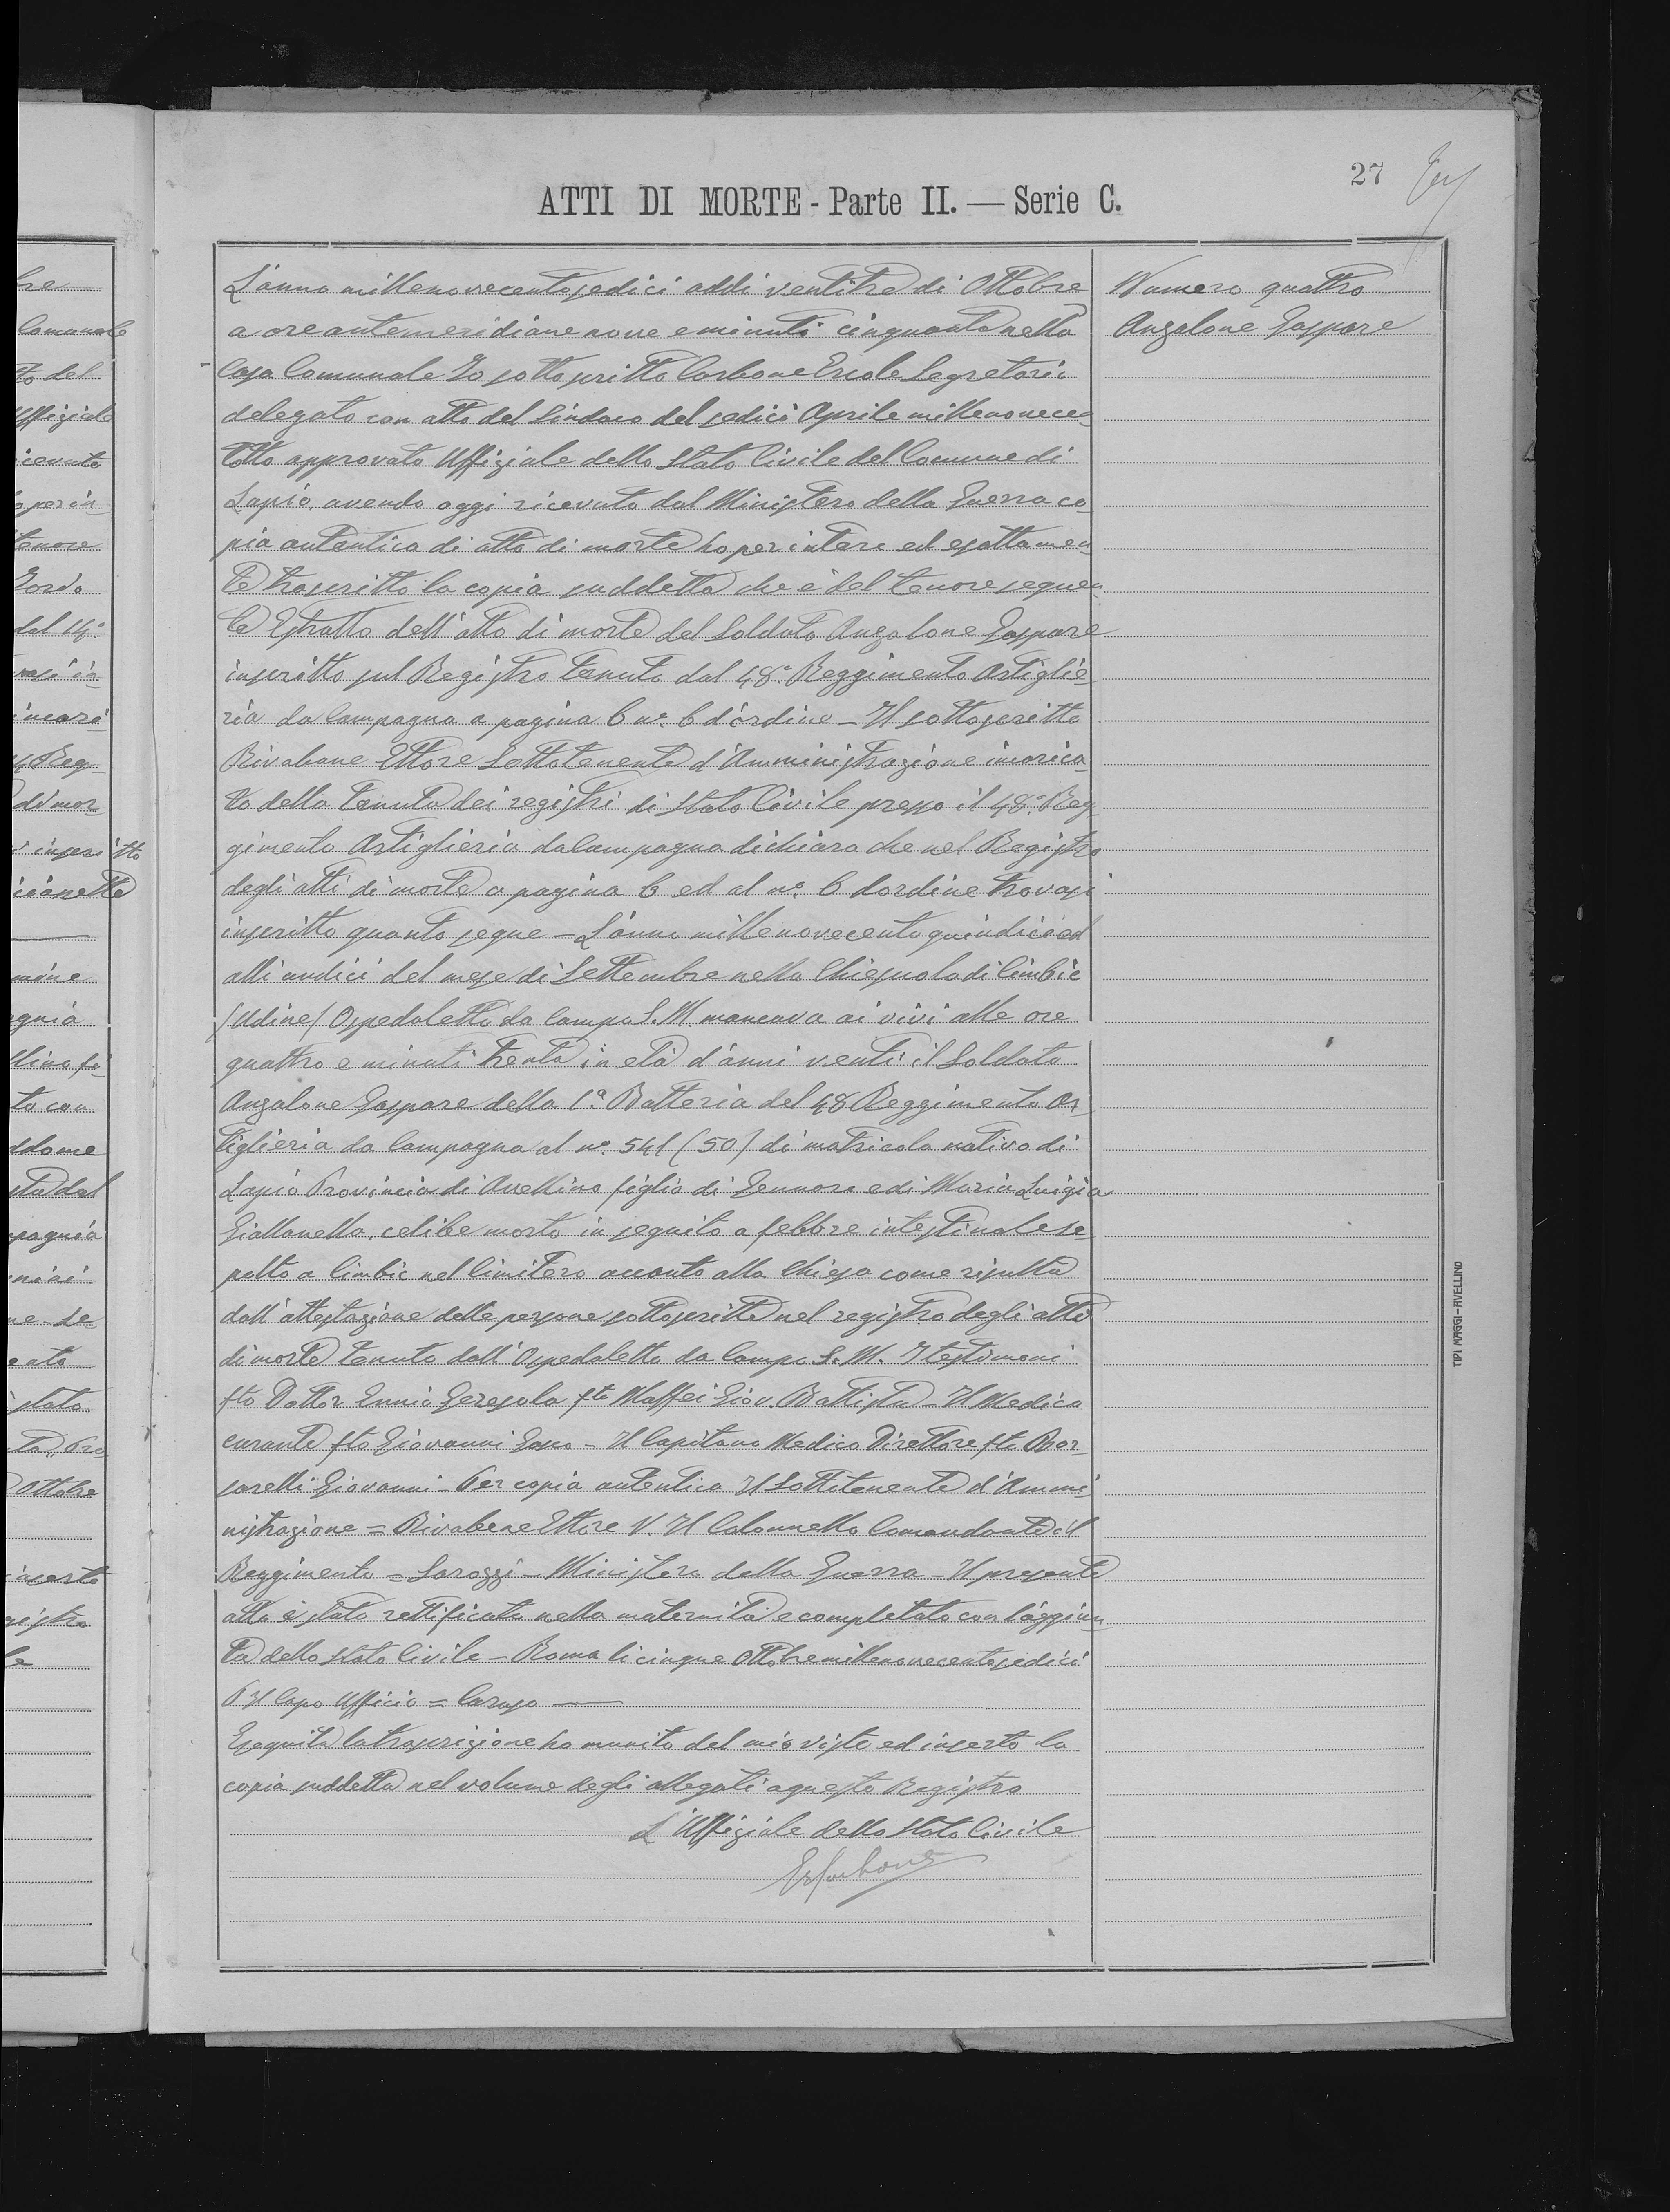 27
ATTI DI MORTE - Parte II. — Serie C.
Numero quattro
Anzalone Gaspare
L'anno millenovecentosedici addi ventitre di Ottobre
a ore antemeridiane nove e minuti cinquanta nella
Casa Comunale Io sottoscritto Carbone Ercole Segretario
delegato con atto del Sindaco del sedici Aprile millenovecen
totto approvato Uffiziale dello Stato Civile del Comune di
Lapio, avendo oggi ricevuto dal Ministero della Guerra co
pia autentica di atto di morte ho per intero ed esattamen
te trascritto la copia suddetta che è del tenore seguen
te Estratto dell'atto di morte del Soldato Anzalone Gaspare
inscritto sul Registro tenuto dal 48° Reggimento Artiglie
ria da Campagna a pagina 6 n° 6 d'ordine - Il sottoscritto
Rivabene Ettore Sottotenente d'Amministrazione incarica
to della tenuta dei registri di Stato Civile presso il 48° Reg
gimento Artiglieria da Campagna dichiara che nel Registro
degli atti di morte a pagina 6 ed al n° 6 d'ordine trovasi
inscritto quanto segue - L'anno millenovecentoquindici ed
alli undici del mese di Settembre nella Chiesuola di Cimbic
(Udine) Ospedaletto da Campo S.M. mancava ai vivi alle ore
quattro e minuti trenta in età d'anni venti il Soldato
Anzalone Gaspare della 1ª Batteria del 48 Reggimento Ar
tiglieria da Campagna al n° 541 (50) di matricola nativo di
Lapio Provincia di Avellino figlio di Gennaro e di Maria Luigia
Giallonella, celibe morto in seguito a febbre intestinale se
polto a Cimbic nel Cimitero accanto alla Chiesa come risulta
dall'attestazione delle persone sottoscritte nel registro degli atti
di morte tenuto dall'Ospedaletto da Campo S.M. I testimoni
fto Dottor Ennio fto Maffei Giov. Battista - Il Medico
curante fto Giovanni - Il Capitano Medico Direttore fto Bor
sarelli Giovanni - Per copia autentica Il Sottotenente d'Ammi
nistrazione = Rivabene Ettore V. Il Colonnello Comandante il
Reggimento = Sarozzi - Ministero della Guerra - Il presente
atto è stato rettificato nella maternità e completato con l'aggiun
ta dello Stato Civile - Roma li cinque Ottobre millenovecentosedici
P Il Capo Ufficio = Caruso
Eseguita la trascrizione ho munito del mio visto ed inserto la
copia suddetta nel volume degli allegati a questo Registro
L'Uffiziale dello Stato Civile
ErCarbone
TIPI MAGGI - AVELLINO